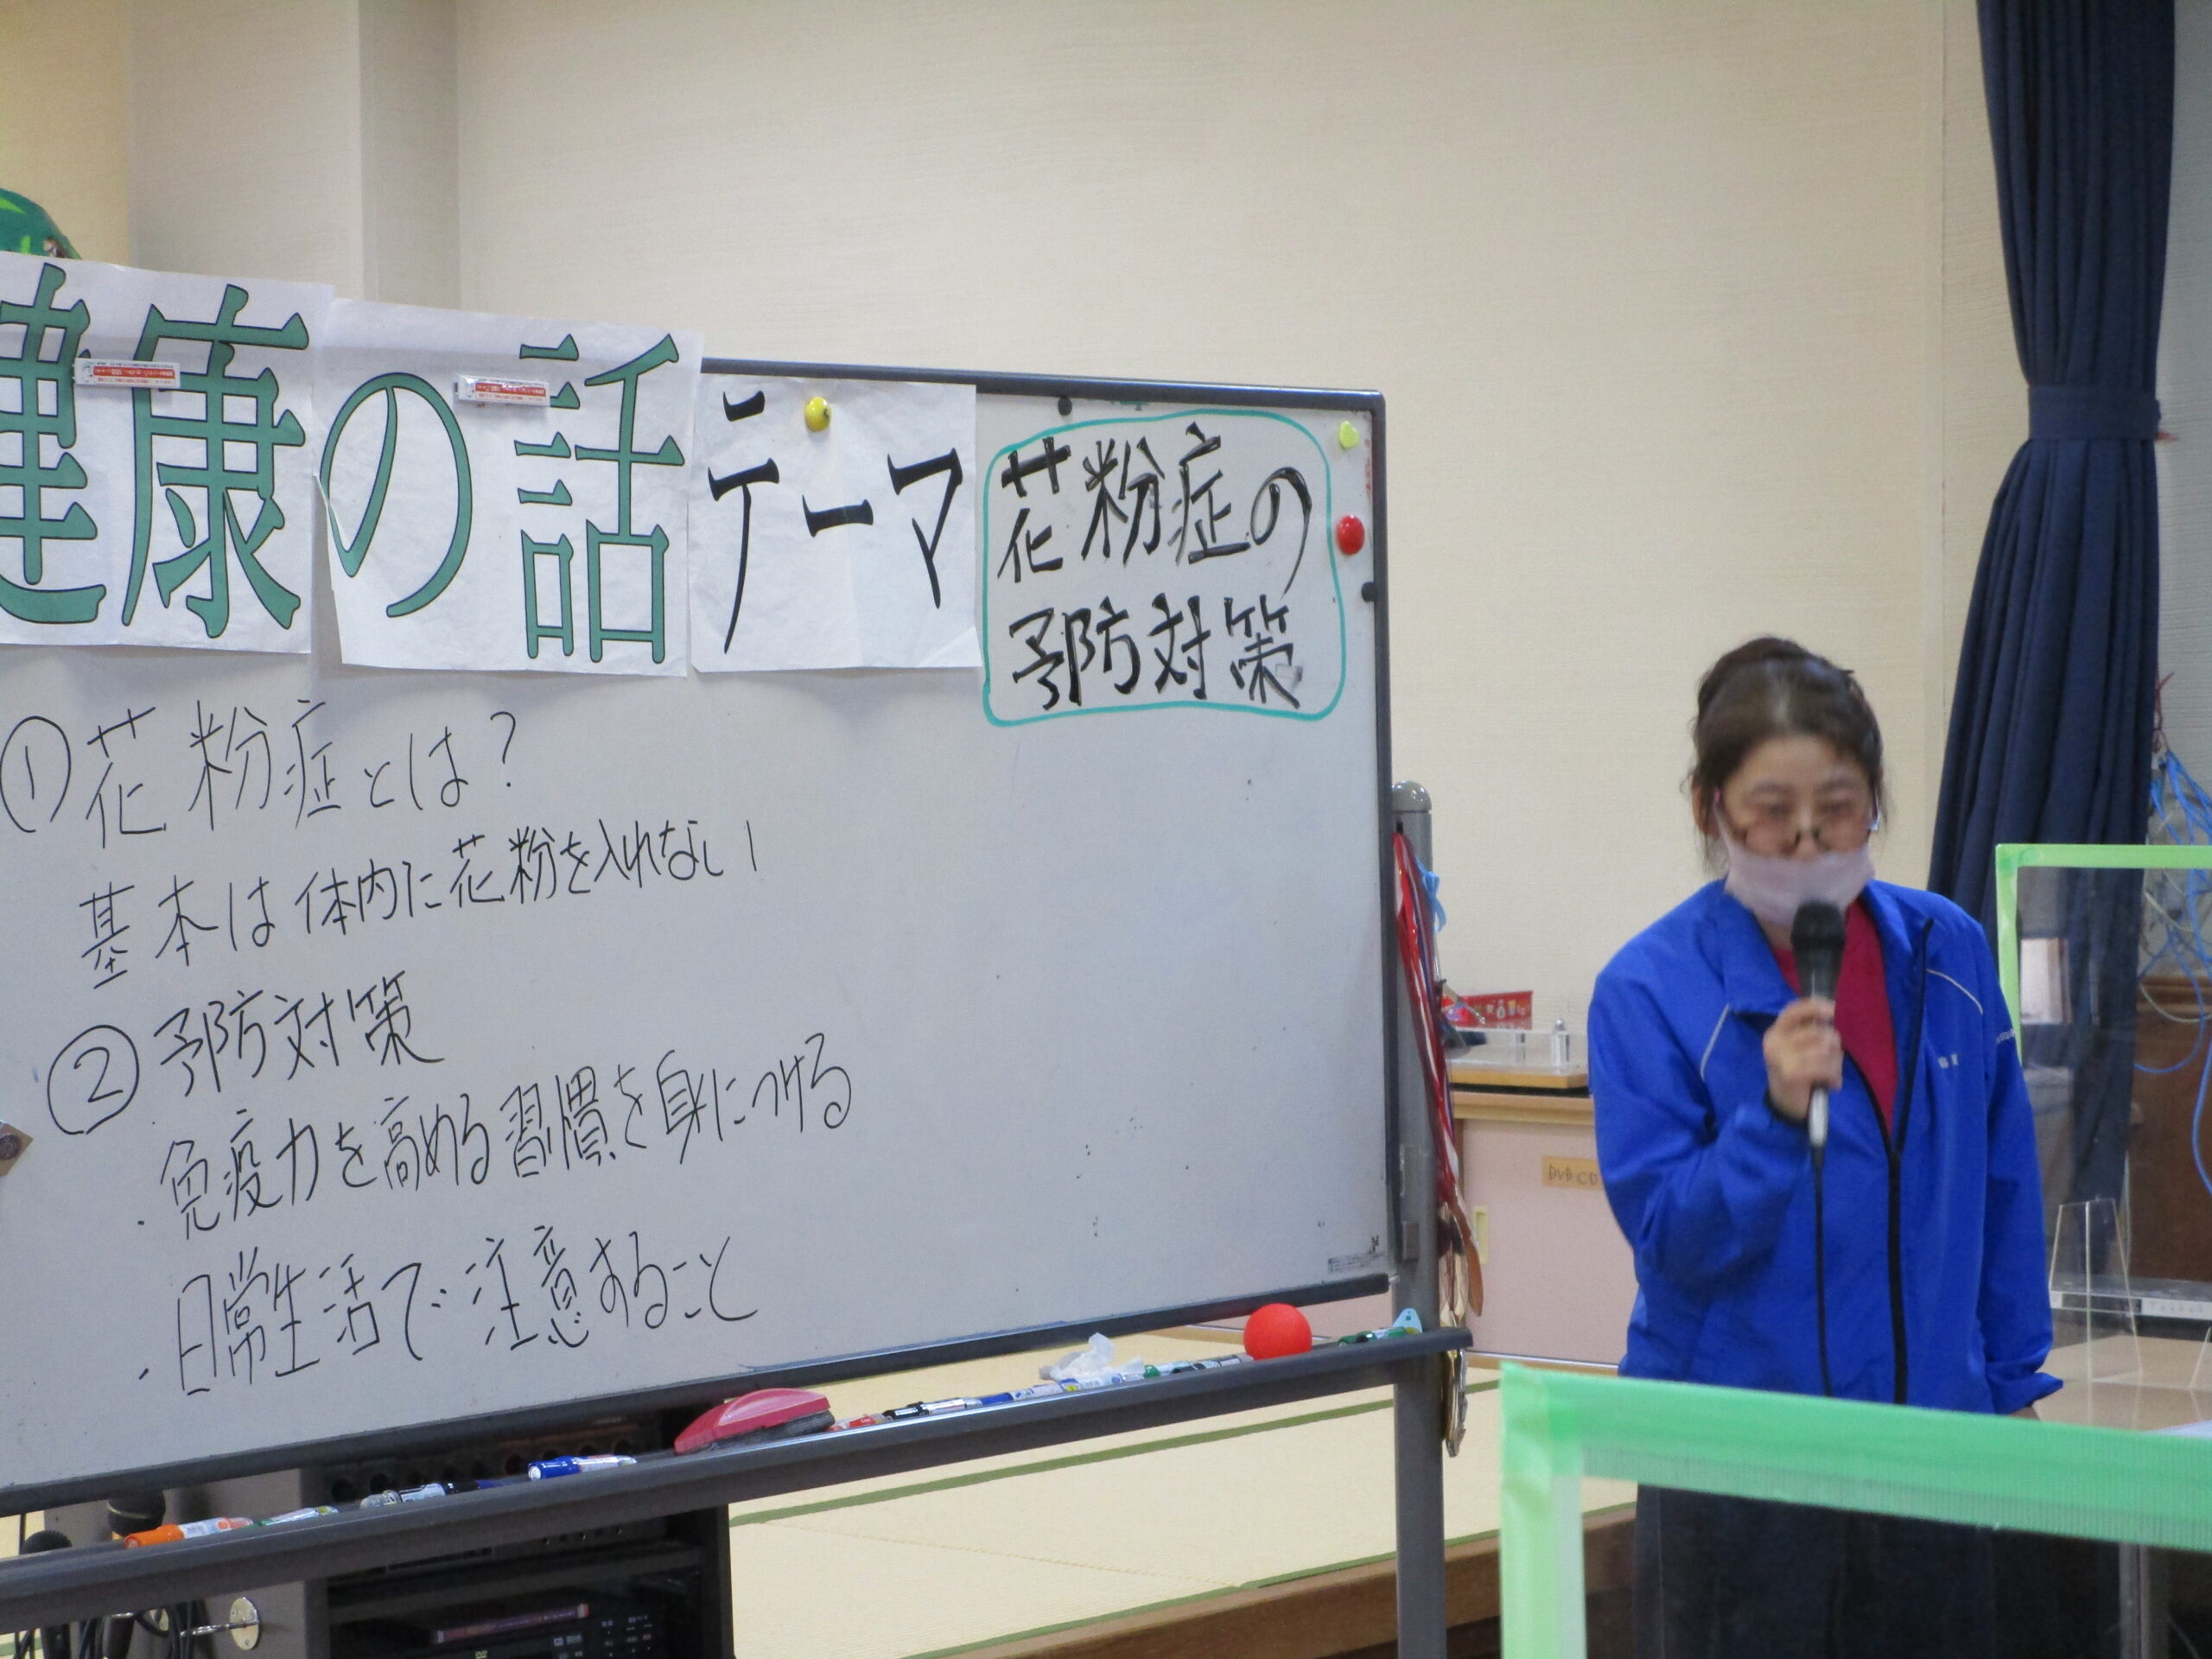 健康の話
テーマ
花粉症の
予防対策
①花粉症とは?
基本は体内に花粉を入れない
②予防対策
・免疫力を高める習慣を身につける
・日常生活で注意すること
DVD CD